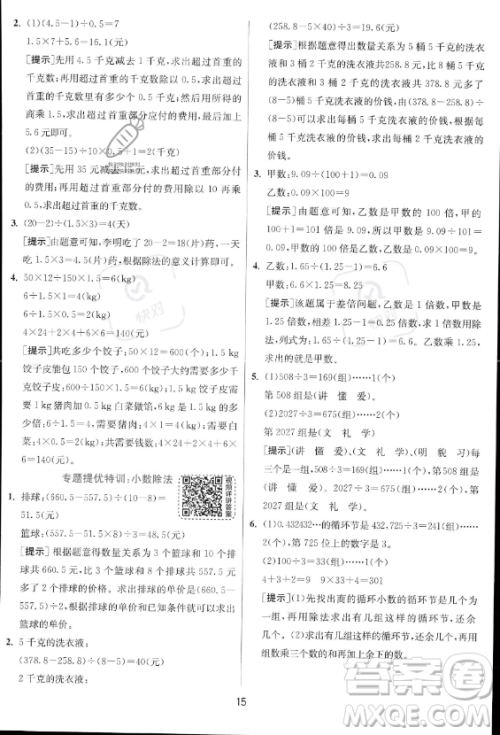 2. (1)(4.5-1)÷0.5=7
1.5×7+5.6=16.1(元)
[提示]先用 4.5 千克减去 1 千克,求出超过首重的
千克数;再用超过首重的千克数除以 0.5,求出超过
首重的千克数里有多少个 0.5 千克,有多少个 0.5
千克就有多少个 1.5 元,求出超过首重的价钱,最后
加上 5.6 元即可。
(2)(35-15)÷10×0.5+1=2(千克)
[提示]先用 35 元减去
元,求出超过首重部分付
的费用;再用超过首重部分付的费用除以 10 再乘
0.5,求出超过首重的千克数。
3. (20-2)÷(1.5×3)=4(天)
[提示]由题意可知,李明吃了 20-2=18(片)药,一天
吃 1.5×3=4.5(片)药,根据除法的意义计算即可。
4. 50×12÷150×1.5=6(kg)
6÷1.5×1=4(kg)
6÷1.5×0.5=2(kg)
4×24+2×6+6×4=132(元)
[提示]共吃多少个饺子:50×12=600(个),1.5 kg
饺子皮能包 150 个饺子,600 个饺子大约需要多少千
克饺子皮:600÷150×1.5=6(kg),1.5 kg 饺子皮配
1 kg 猪肉加 0.5 kg 白菜做馅,6 kg 饺子皮需要猪
肉:6÷1.5×1=4(kg),需要白菜:6÷1.5×0.5=
2(kg)。需要的总价钱=猪肉价钱+白菜价钱+饺
子皮价钱,即 4×24+2×6+6×4=96+12+24=
132(元)。
专题提优特训:小数除法
视频讲解答案
1. 排球:(660.5-557.5)÷(10-8)=
51.5(元)
篮球:(557.5-51.5×8)÷3=
48.5(元)
[提示]根据题意得数量关系为 3 个篮球和 10 个排
球共 660.5 元,3 个篮球和 8 个排球共 557.5 元。
两个数量关系进行比较,排球少 2 个,就少(660.5-
557.5)元,即为 2 个排球的价格。求出排球的单价,
将排球的单价代入其中的一个数量关系,可以求出
篮球的单价。
2. 5 千克的洗衣液:
(378.8-258.8)÷(8-5)=40(元)
2 千克的洗衣液:
(258.8-5×40)÷3=19.6(元)
[提示]根据题意得数量关系为 5 桶 5 千克的洗衣
液和 3 桶 2 千克的洗衣液共 258.8 元,8 桶 5 千克
的洗衣液和 3 桶 2 千克的洗衣液共 378.8 元,多了
(8-5)桶 5 千克的洗衣液的价钱,就多了(378.8-
258.8)元,求出每桶 5 千克的洗衣液的价钱,再代入
其中的一个数量关系,求出每桶 2 千克的洗衣液的
价钱。
3. 甲数:9.09÷(100+1)=0.09
乙数:0.09×100=9
[提示]由题意可知,乙数是甲数的 100 倍,甲数是
1 倍数,和是甲数的(100+1)倍,用除法求出的是
甲数。
4. 乙数:1.65÷(1.25-1)=6.6
甲数:6.6×1.25=8.25
[提示]该题属于差倍问题,甲数是乙数的 1.25 倍,
乙数是 1 倍数,1.65 是乙数的(1.25-1)倍,用除
法,列式为:1.65÷(1.25-1)=6.6,乘 1.25 倍,
求出的就是甲数。
5. (1)508÷3=169(组)······1(个)
第 508 组:(讲 懂 爱)
(2)2027÷3=675(组)······2(个)
第 2027 组:(文 礼 学)
[提示](文 礼 学)、(明 貌 习)每
三个一组,508÷3=169(组)······1(个),则第 508
组是(讲 懂 爱)。2027÷3=675(组)······2(个),
则第 2027 组是(文 礼 学)。
6. (1)0.432432···的循环节是 432,725÷3=241(组)
······2(个),第 725 位上的数字是 3。
(2)100÷3=33(组)······1(个)
4+3+2=9
33×9+4=301
[提示]先找出商的循环小数的循环节是几位数字,
再用除法求出有几组这样的循环节,还余几,余几
就从循环节的首位起数几位。求前 100 位上的数字
之和,要先求出有几组这样的循环节,再用组数乘一
组数字之和再加上余下的数。
15
答案圈
MXQE.COM